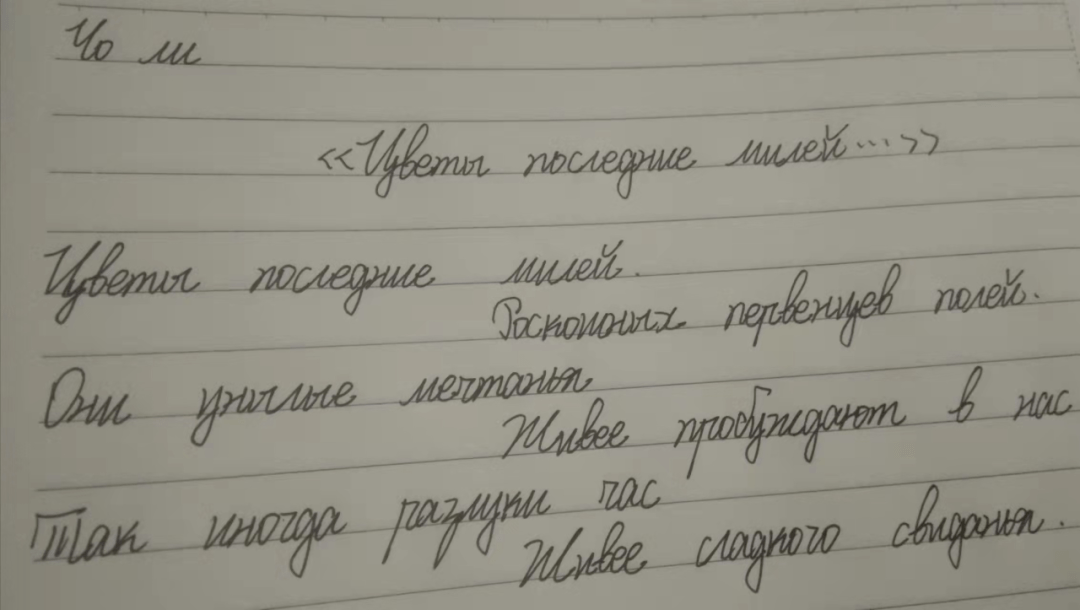 Чо ли
<<Цветы последние милей...>>
Цветы последние милей.
Роскошных первенцев полей.
Они унылые мечтанья
Живее пробуждают в нас
Так иногда разлуки час
Живее сладкого свиданья.